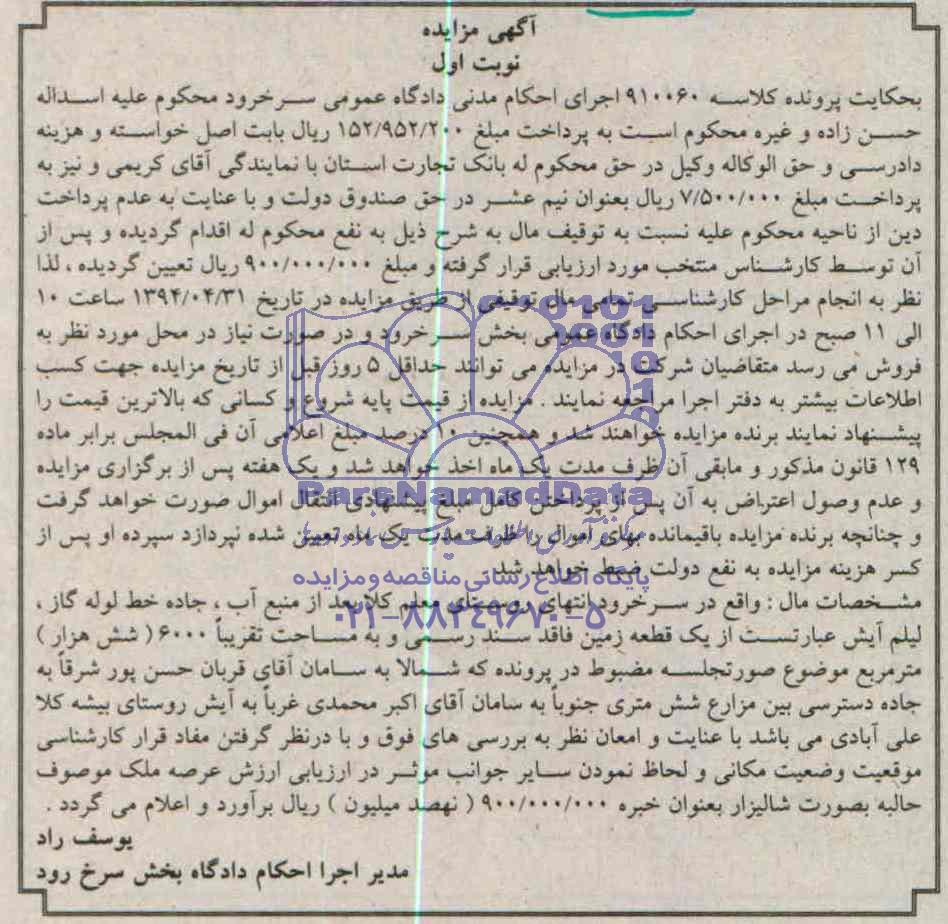 آگهی مزایده
نوبت اول
بحکایت پرونده کلاسه ۹۱۰۰۶۰ اجرای احکام مدنی دادگاه عمومی سرخرود محکوم علیه اسداله
حسن زاده و غیره محکوم است به پرداخت مبلغ ۱۵۲/۹۵۲/۲۰۰ ریال بابت اصل خواسته و هزینه
دادرسی و حق الوکاله وکیل در حق محکوم له بانک تجارت استان با نمایندگی آقای کریمی و نیز به
پرداخت مبلغ ۷/۵۰۰/۰۰۰ ریال بعنوان نیم عشر در حق صندوق دولت و با عنایت به عدم پرداخت
دین از ناحیه محکوم علیه نسبت به توقیف مال به شرح ذیل به نفع محکوم له اقدام گردیده و پس از
آن توسط کارشناس منتخب مورد ارزیابی قرار گرفته و مبلغ ۹۰۰/۰۰۰/۰۰۰ ریال تعیین گردیده ، لذا
نظر به انجام مراحل کارشناسی تمامی مال توقیفی از طریق مزایده در تاریخ ۱۳۹۴/۰۴/۳۱ ساعت ۱۰
الی ۱۱ صبح در اجرای احکام دادگاه عمومی بخش سرخرود و در صورت نیاز در محل مورد نظر به
فروش می رسد متقاضیان شرکت در مزایده می توانند حداقل ۵ روز قبل از تاریخ مزایده جهت کسب
اطلاعات بیشتر به دفتر اجرا مراجعه نمایند . مزایده از قیمت پایه شروع و کسانی که بالاترین قیمت را
پیشنهاد نمایند برنده مزایده خواهند شد و همچنین ۱۰ درصد مبلغ اعلامی آن فی المجلس برابر ماده
۱۲۹ قانون مذکور و مابقی آن ظرف مدت یک ماه اخذ خواهد شد و یک هفته پس از برگزاری مزایده
ParsNamadData
و عدم وصول اعتراض به آن پس از پرداختن کامل مبلغ پیشنهادی انتقال اموال صورت خواهد گرفت
و چنانچه برنده مزایده باقیمانده بهای اموال را ظرف مدت یک ماه تعیین شده نپردازد سپرده او پس از
کسر هزینه مزایده به نفع دولت ضبط خواهد شد .
پایگاه اطلاع رسانی مناقصه و مزایده
مشخصات مال : واقع در سرخرود انتهای روستای معلم کلا بعد از منبع آب ، جاده خط لوله گاز ،
۰۲۱-۸۸۳۴۹۶۷۰-۵
لیلم آیش عبارتست از یک قطعه زمین فاقد سند رسمی و به مساحت تقریباً ۶۰۰۰ ( شش هزار )
مترمربع موضوع صورتجلسه مضبوط در پرونده که شمالا به سامان آقای قربان حسن پور شرقاً به
جاده دسترسی بین مزارع شش متری جنوباً به سامان آقای اکبر محمدی غرباً به آیش روستای بیشه کلا
علی آبادی می باشد با عنایت و امعان نظر به بررسی های فوق و با درنظر گرفتن مفاد قرار کارشناسی
موقعیت وضعیت مکانی و لحاظ نمودن سایر جوانب موثر در ارزیابی ارزش عرصه ملک موصوف
حالیه بصورت شالیزار بعنوان خبره ۹۰۰/۰۰۰/۰۰۰ ( نهصد میلیون ) ریال برآورد و اعلام می گردد .
یوسف راد
مدیر اجرا احکام دادگاه بخش سرخ رود